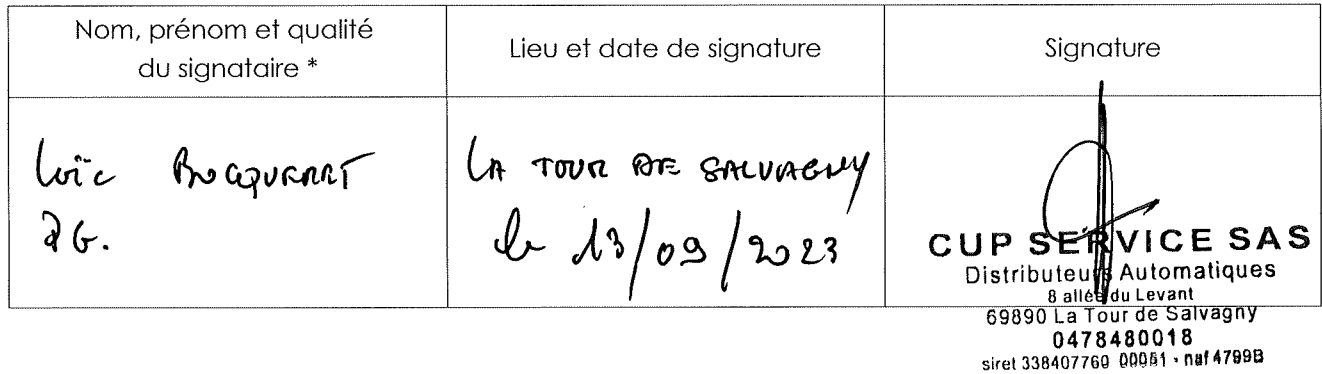 Nom, prénom et qualité
du signataire *
Lieu et date de signature
Signature
Loïc
DG.
LA TOUR DE SALVAGNY
le 13/09/2023
CUP SERVICE SAS
Distributeurs Automatiques
8 allée du Levant
69890 La Tour de Salvagny
0478480018
siret 338407760 00051 - naf 4799B